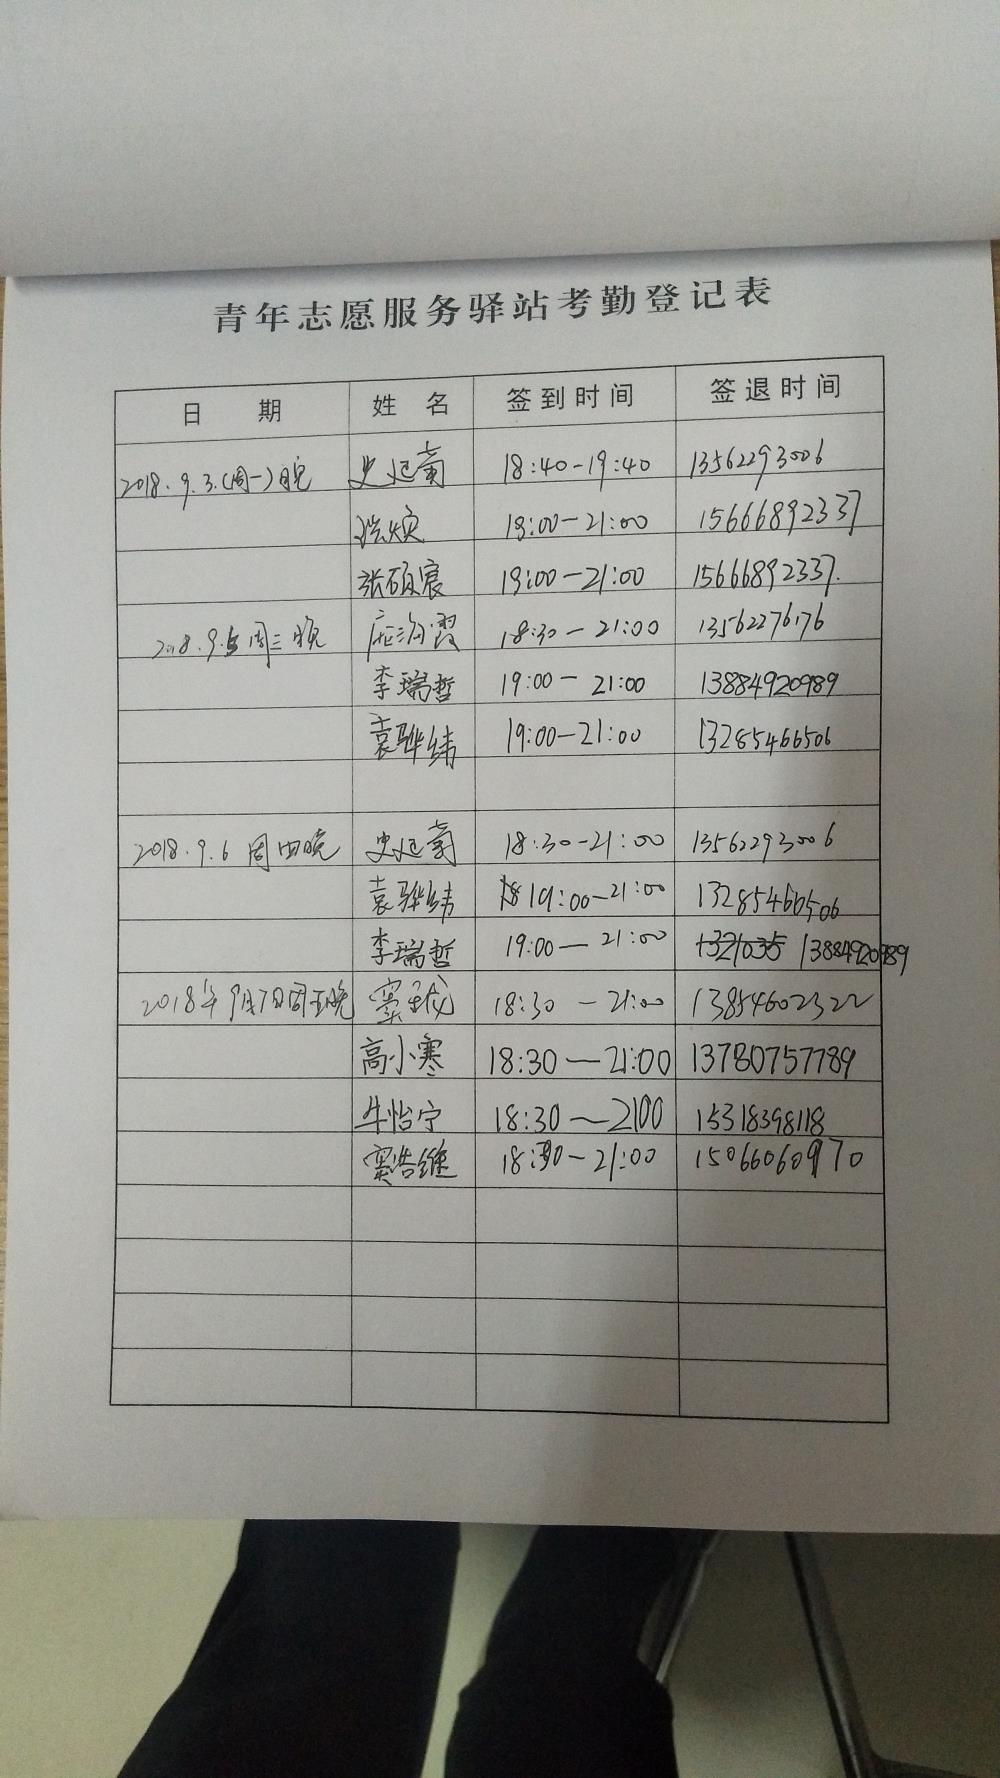 青年志愿服务驿站考勤登记表
日 期 姓 名 签到时间 签退时间
2018.9.3.(周一)晚 史延菊 18:40-19:40 13562293006
19:00-21:00 15666892337
张硕宸 19:00-21:00 15666892337.
2018.9.5周三晚 18:30-21:00 13562276176
李瑞哲 19:00-21:00 13884920989
袁骅纬 19:00-21:00 13285466506
2018.9.6 周四晚 史延菊 18:30-21:00 13562293006
袁骅纬 19:00-21:00 13285466506
李瑞哲 19:00-21:00 13884920989
2018年9月7日周五晚 18:30-21:00 13854602322
高小寒 18:30-21:00 13780757789
牛怡宁 18:30-2100 15318398118
窦浩维 18:30-21:00 15066060970